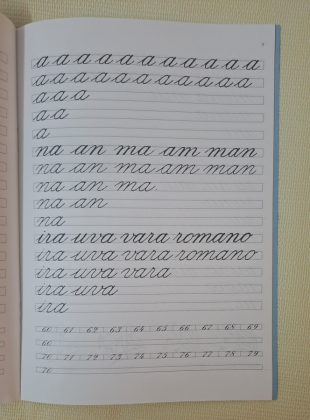 a a a a a a a a a a a
a a a a a a a a a a a
a a a
a a
a
na an ma am man
na an ma am man
na an ma
na an
na
ira uva vara romano
ira uva vara romano
ira uva vara
ira uva
ira
60 61 62 63 64 65 66 67 68 69
60
70 71 72 73 74 75 76 77 78 79
70